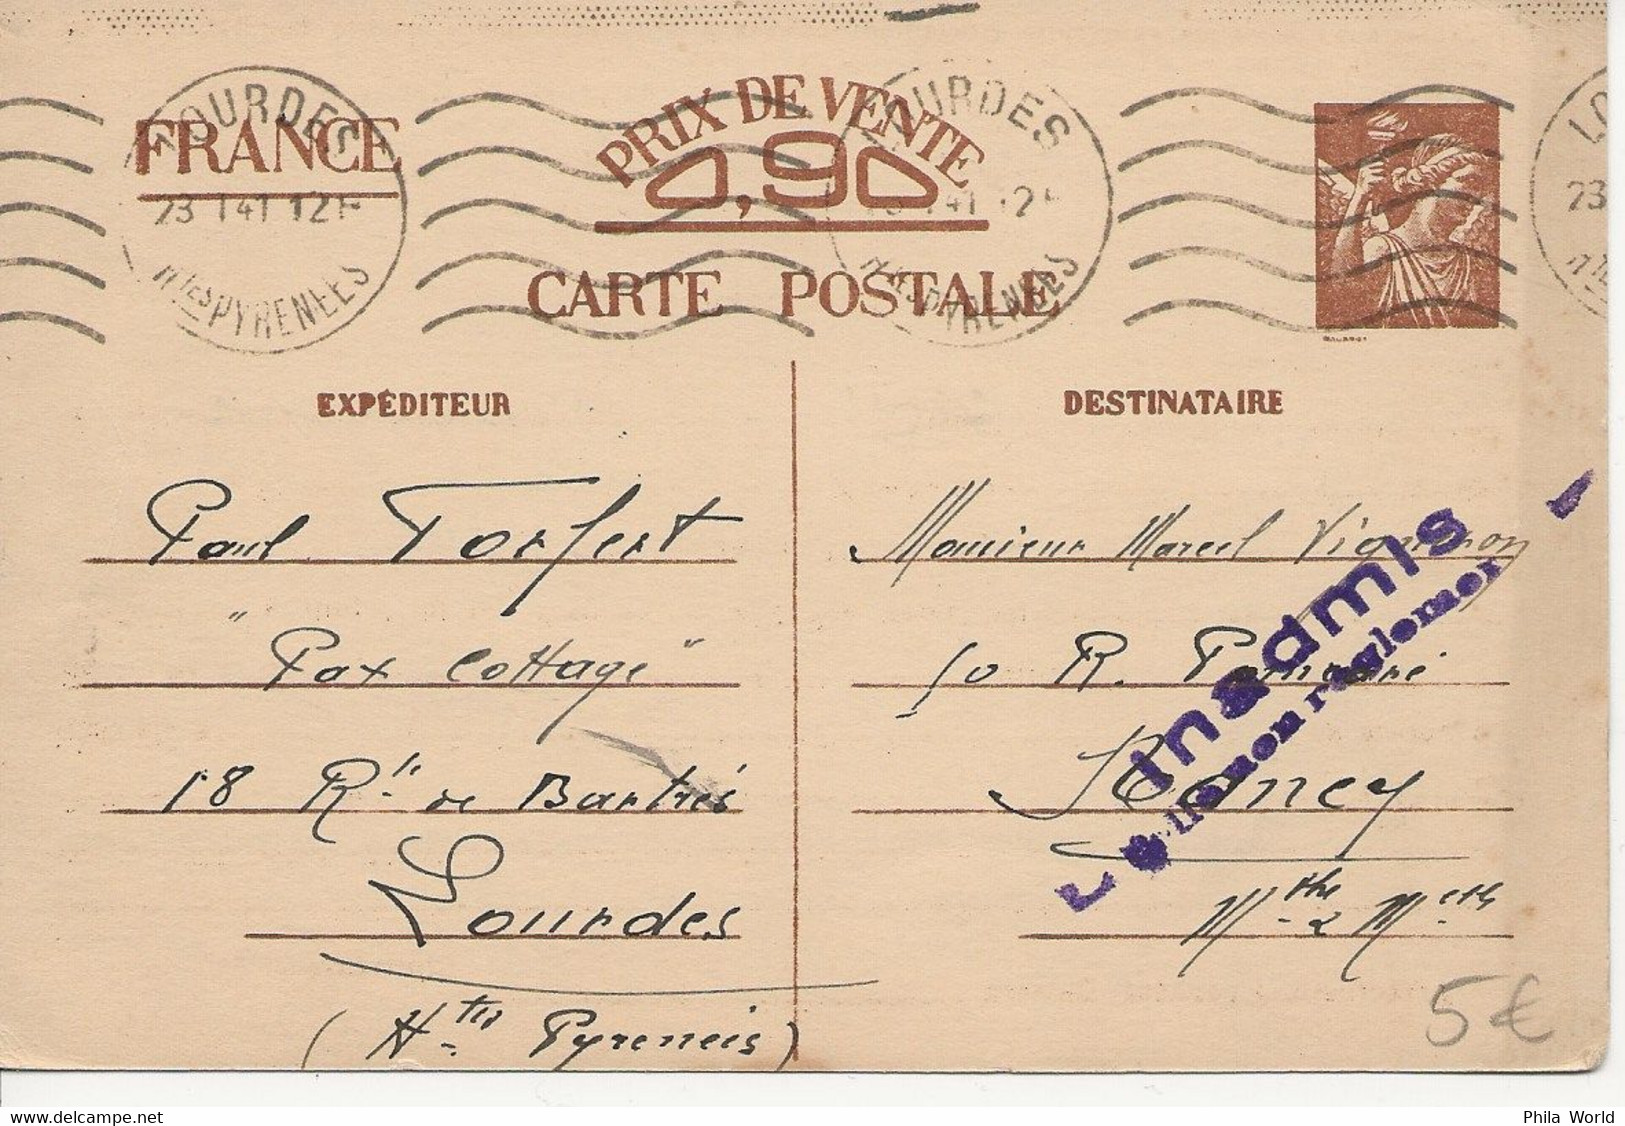 LOURDES
23 1 41 12H
Htes PYRENEES
LOURDES
41 12
Htes PYRENEES
LO
23
FRANCE
PRIX DE VENTE
0,90
CARTE POSTALE
EXPÉDITEUR
Paul Torfert
"Pax Cottage"
18 Rte de Bartrès
Lourdes
(Htes Pyrenées)
DESTINATAIRE
Monsieur Marcel Vigneron
50 R. Poincaré
Nancy
Mthe & Melle
inadmis
non réglemen
5€
Phila World